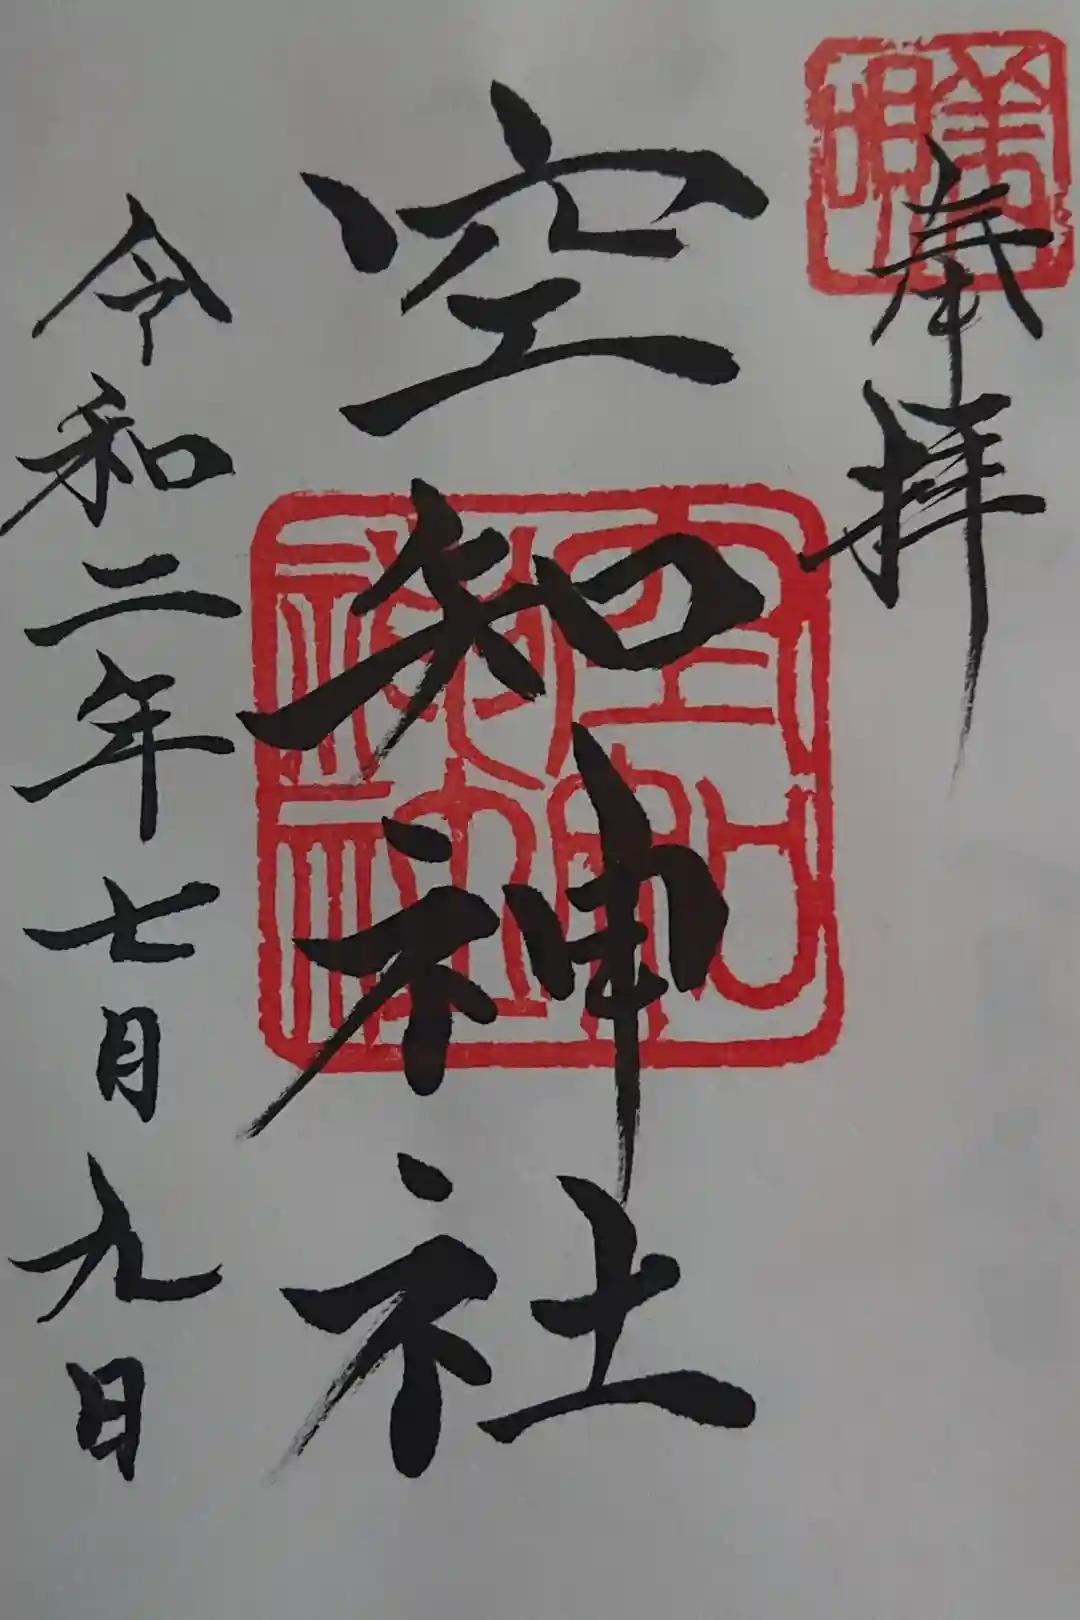 奉拝
美唄
空知神社
空知神社
令和二年七月九日